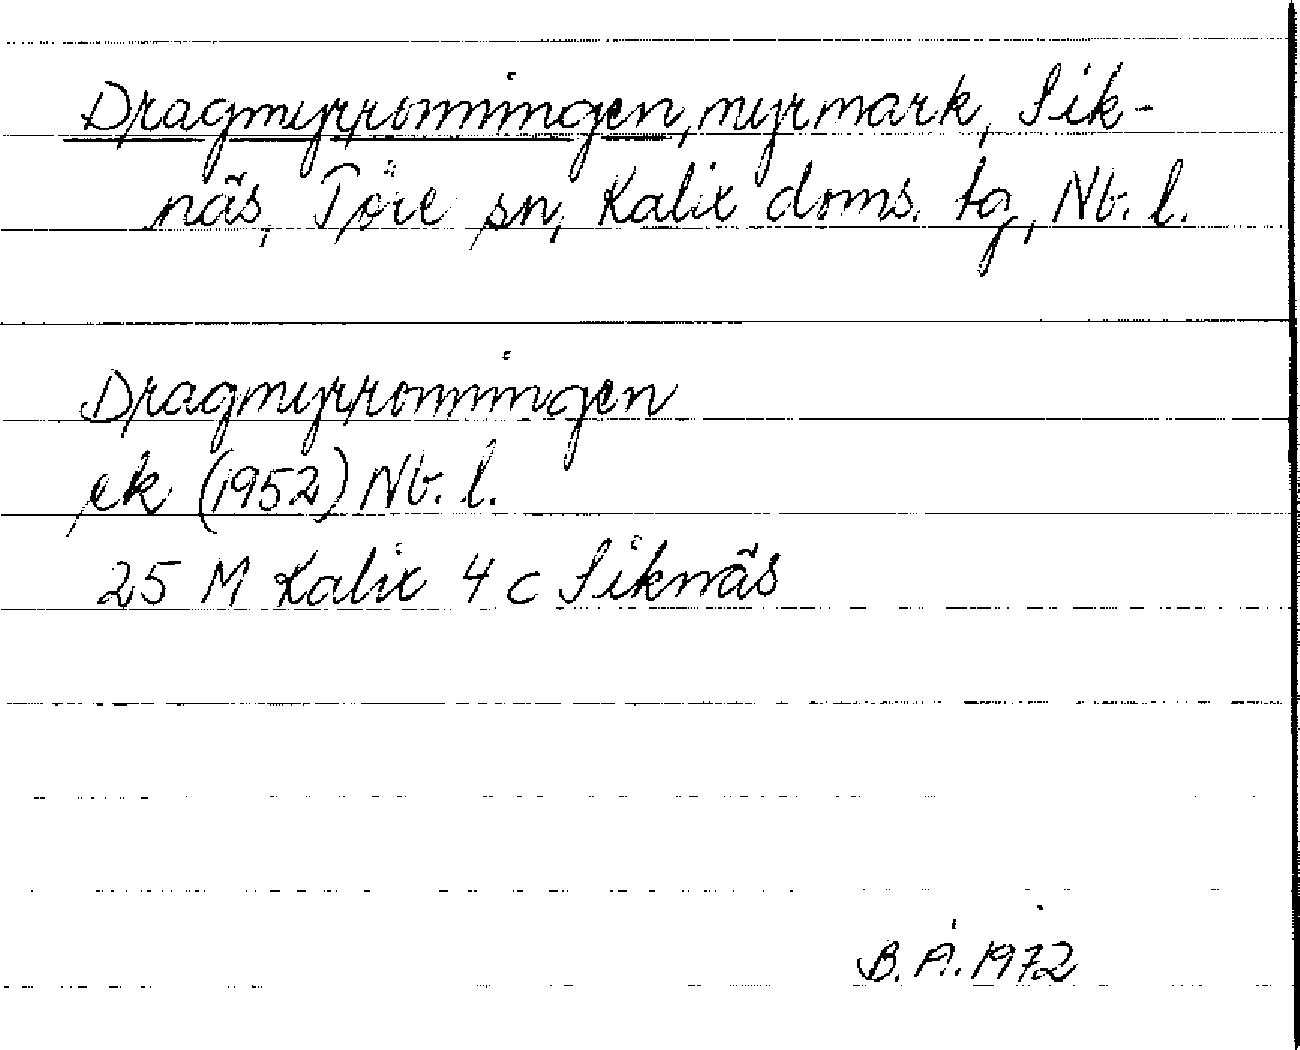 Dragmyrronningen, myrmark, Sik-
näs, Töre sn, Kalix doms. tg, Nb. l.
Dragmyrronningen
ek (1952) Nb. l.
25 M Kalix 4 c Siknäs
B. Å. 1972